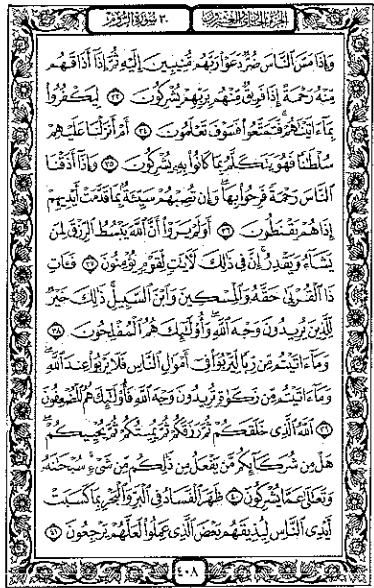 الجزء الحادي والعشرون ٣٠ سورة الروم
وَإِذَا مَسَّ ٱلنَّاسَ ضُرٌّ دَعَوْا۟ رَبَّهُم مُّنِيبِينَ إِلَيْهِ ثُمَّ إِذَآ أَذَاقَهُم
مِّنْهُ رَحْمَةً إِذَا فَرِيقٌ مِّنْهُم بِرَبِّهِمْ يُشْرِكُونَ ٣٣ لِيَكْفُرُوا۟
بِمَآ ءَاتَيْنَٰهُمْ ۚ فَتَمَتَّعُوا۟ فَسَوْفَ تَعْلَمُونَ ٣٤ أَمْ أَنزَلْنَا عَلَيْهِمْ
سُلْطَٰنًا فَهُوَ يَتَكَلَّمُ بِمَا كَانُوا۟ بِهِۦ يُشْرِكُونَ ٣٥ وَإِذَآ أَذَقْنَا
ٱلنَّاسَ رَحْمَةً فَرِحُوا۟ بِهَا ۖ وَإِن تُصِبْهُمْ سَيِّئَةٌۢ بِمَا قَدَّمَتْ أَيْدِيهِمْ
إِذَا هُمْ يَقْنَطُونَ ٣٦ أَوَلَمْ يَرَوْا۟ أَنَّ ٱللَّهَ يَبْسُطُ ٱلرِّزْقَ لِمَن
يَشَآءُ وَيَقْدِرُ ۚ إِنَّ فِى ذَٰلِكَ لَءَايَٰتٍ لِّقَوْمٍ يُؤْمِنُونَ ٣٧ فَـَٔاتِ
ذَا ٱلْقُرْبَىٰ حَقَّهُۥ وَٱلْمِسْكِينَ وَٱبْنَ ٱلسَّبِيلِ ۚ ذَٰلِكَ خَيْرٌ
لِّلَّذِينَ يُرِيدُونَ وَجْهَ ٱللَّهِ ۖ وَأُو۟لَٰٓئِكَ هُمُ ٱلْمُفْلِحُونَ ٣٨
وَمَآ ءَاتَيْتُم مِّن رِّبًا لِّيَرْبُوَا۟ فِىٓ أَمْوَٰلِ ٱلنَّاسِ فَلَا يَرْبُوا۟ عِندَ ٱللَّهِ ۖ
وَمَآ ءَاتَيْتُم مِّن زَكَوٰةٍ تُرِيدُونَ وَجْهَ ٱللَّهِ فَأُو۟لَٰٓئِكَ هُمُ ٱلْمُضْعِفُونَ
٣٩ ٱللَّهُ ٱلَّذِى خَلَقَكُمْ ثُمَّ رَزَقَكُمْ ثُمَّ يُمِيتُكُمْ ثُمَّ يُحْيِيكُمْ ۖ
هَلْ مِن شُرَكَآئِكُم مَّن يَفْعَلُ مِن ذَٰلِكُم مِّن شَىْءٍ ۚ سُبْحَٰنَهُۥ
وَتَعَٰلَىٰ عَمَّا يُشْرِكُونَ ٤٠ ظَهَرَ ٱلْفَسَادُ فِى ٱلْبَرِّ وَٱلْبَحْرِ بِمَا كَسَبَتْ
أَيْدِى ٱلنَّاسِ لِيُذِيقَهُم بَعْضَ ٱلَّذِى عَمِلُوا۟ لَعَلَّهُمْ يَرْجِعُونَ ٤١
٤٠٨